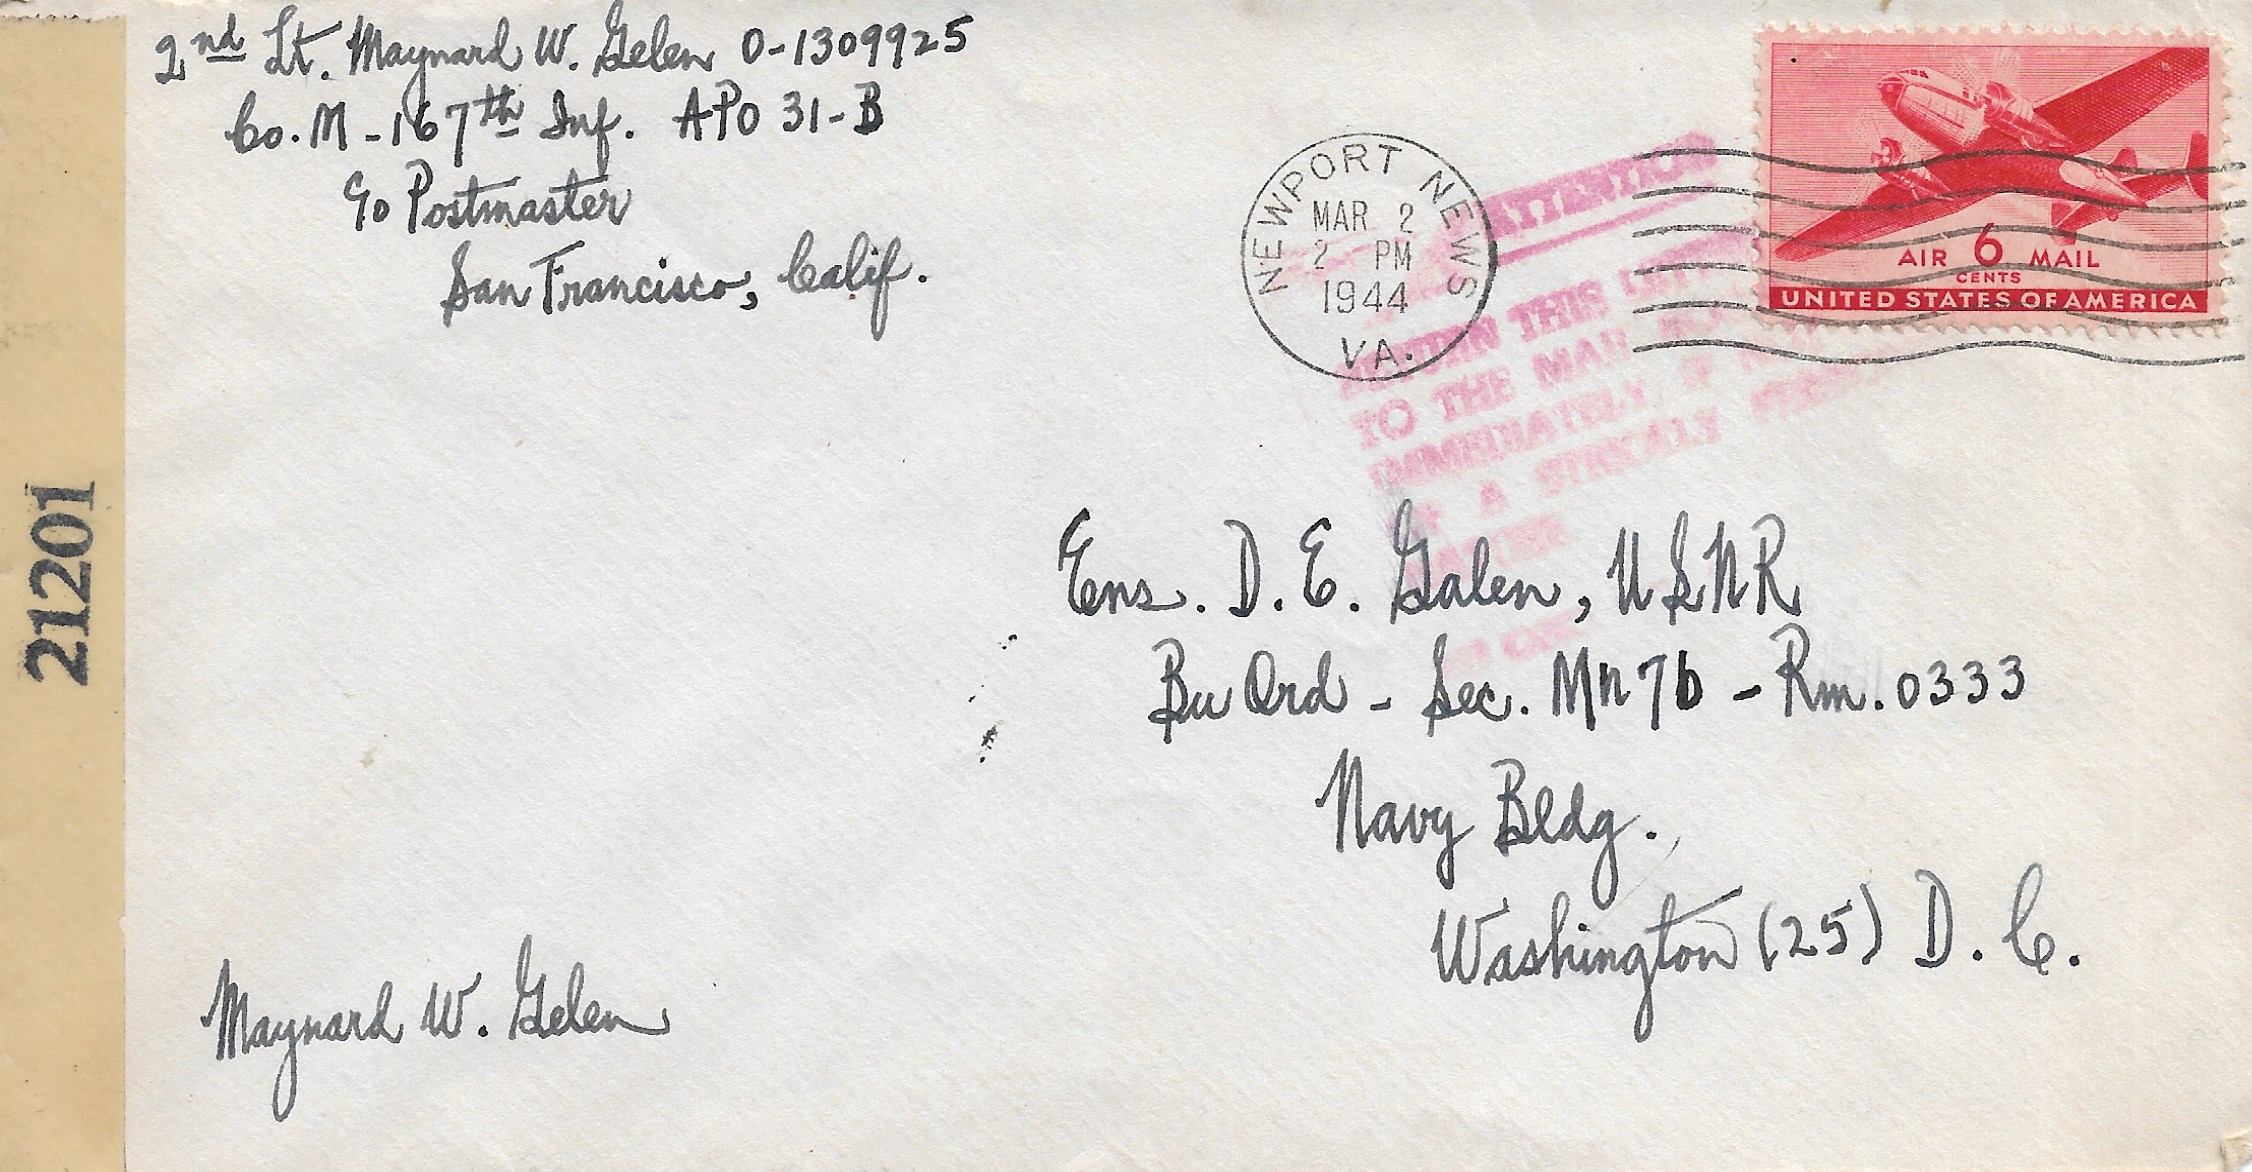 2nd Lt. Maynard W. Gelen O-1309925
Co. M - 167th Inf. APO 31-B
c/o Postmaster
San Francisco, Calif.
NEWPORT NEWS
MAR 2
2 PM
1944
VA.
AIR 6 MAIL
CENTS
UNITED STATES OF AMERICA
ATTENTION
RETURN THIS
TO THE MAIL
IMMEDIATELY IF
A
21201
Ens. D. E. Galen, USNR
Bu Ord - Sec. Mn7b - Rm. 0333
Navy Bldg.
Washington (25) D. C.
Maynard W. Gelen